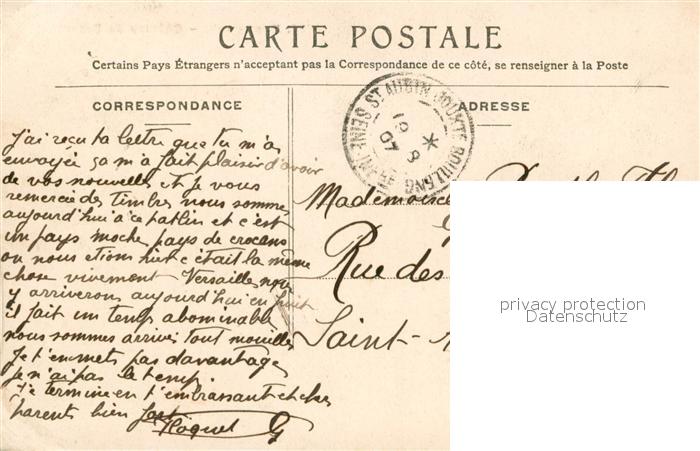 CARTE POSTALE
Certains Pays Étrangers n'acceptant pas la Correspondance de ce côté, se renseigner à la Poste
CORRESPONDANCE
ADRESSE
ST AUBIN JOUXTE BOULLENG SEINE
19 8
07
j'ai reçu ta lettre que tu m'as
envoyée ça m'a fait plaisir d'avoir
de vos nouvelles et je vous
remercie des timbres nous sommes
aujourd'hui à ce patlin et c'est
un pays moche pays de
ou nous etions hier c'était la même
chose vivement Versailles nous
y arriverons aujourd'hui en huit
il fait un temps abominable
nous sommes arrivé tout mouillés
Je t'en mets pas davantage
je n'ai pas le temps.
Je termine en t'embrassant et chers
parents bien fort
Mademoisel
Rue des
Saint-
privacy protection
Datenschutz